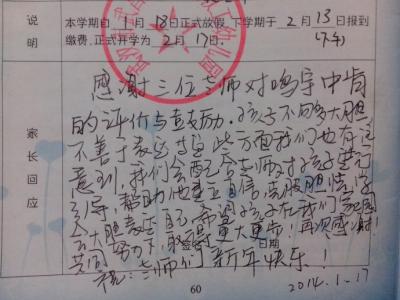 说明
本学期自 1 月 18 日正式放假，下学期于 2 月 13 日报到
缴费，正式开学为 2 月 17 日。
家长回应
感谢三位老师对鸣宇中肯
的评价与鼓励。孩子不够大胆，
不善于表达等，这些方面我们也有注
意到，我们会配合老师对孩子进行
引导，帮助他建立自信，克服胆怯，学
会大胆表达自己。希望孩子在我们
共同努力下，取得更大进步！再次感谢！
日期
祝：老师们新年快乐！
2014.1.17
60